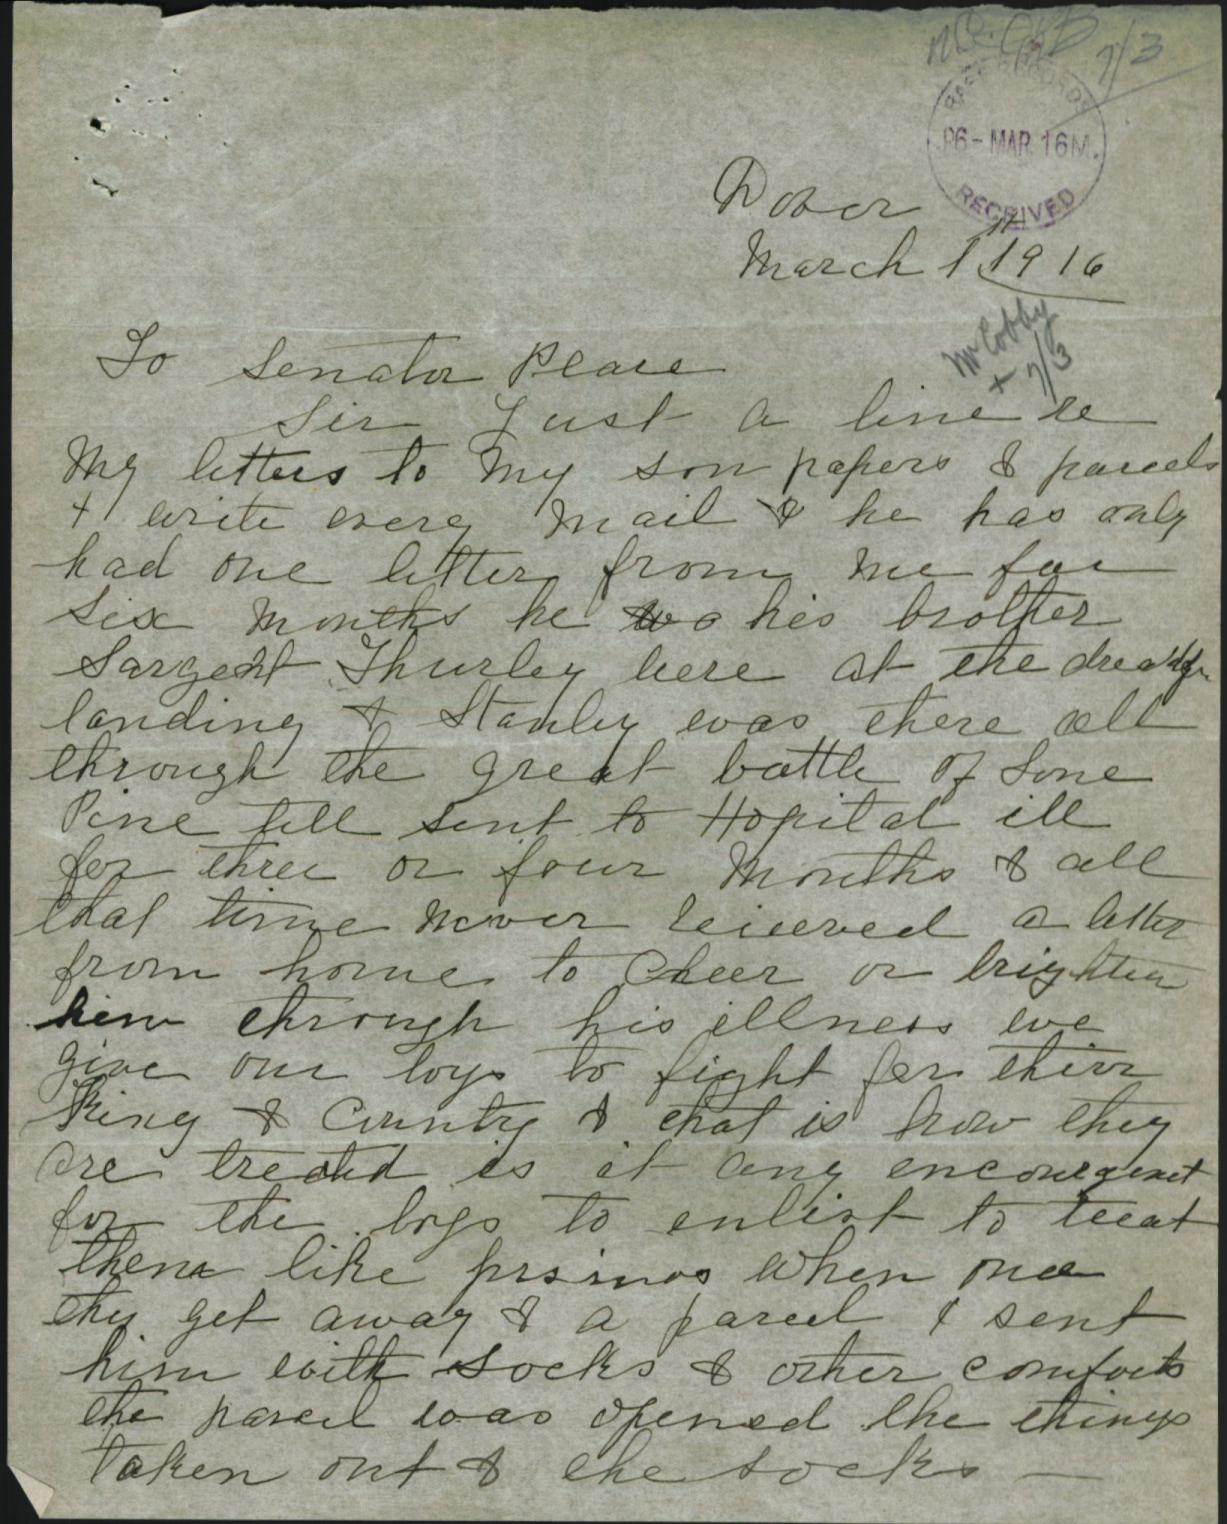 7/3
BASE RECORDS
P6-MAR.16M.
RECEIVED
Dover
March 1st 1916
Mr Cobby
+ 7/3
To Senator Pearce
Sir Just a line re
My letters to my son papers & parcels
I write every mail & he has only
had one letter from me for
six months he & his brother
Sargent Thurley were at the dreadful
landing & Stanley was there all
through the great battle of Lone
Pine till sent to Hopital ill
for three or four months & all
that time never reieved a letter
from home to cheer or brighten
him through his illness we
give our boys to fight for their
King & Country & that is how they
are treated is it any encouragemet
for the boys to enlist to treat
them like prsinos when once
they get away & a parcel I sent
him with socks & other comforts
the parcel was opened the things
taken out & the socks —